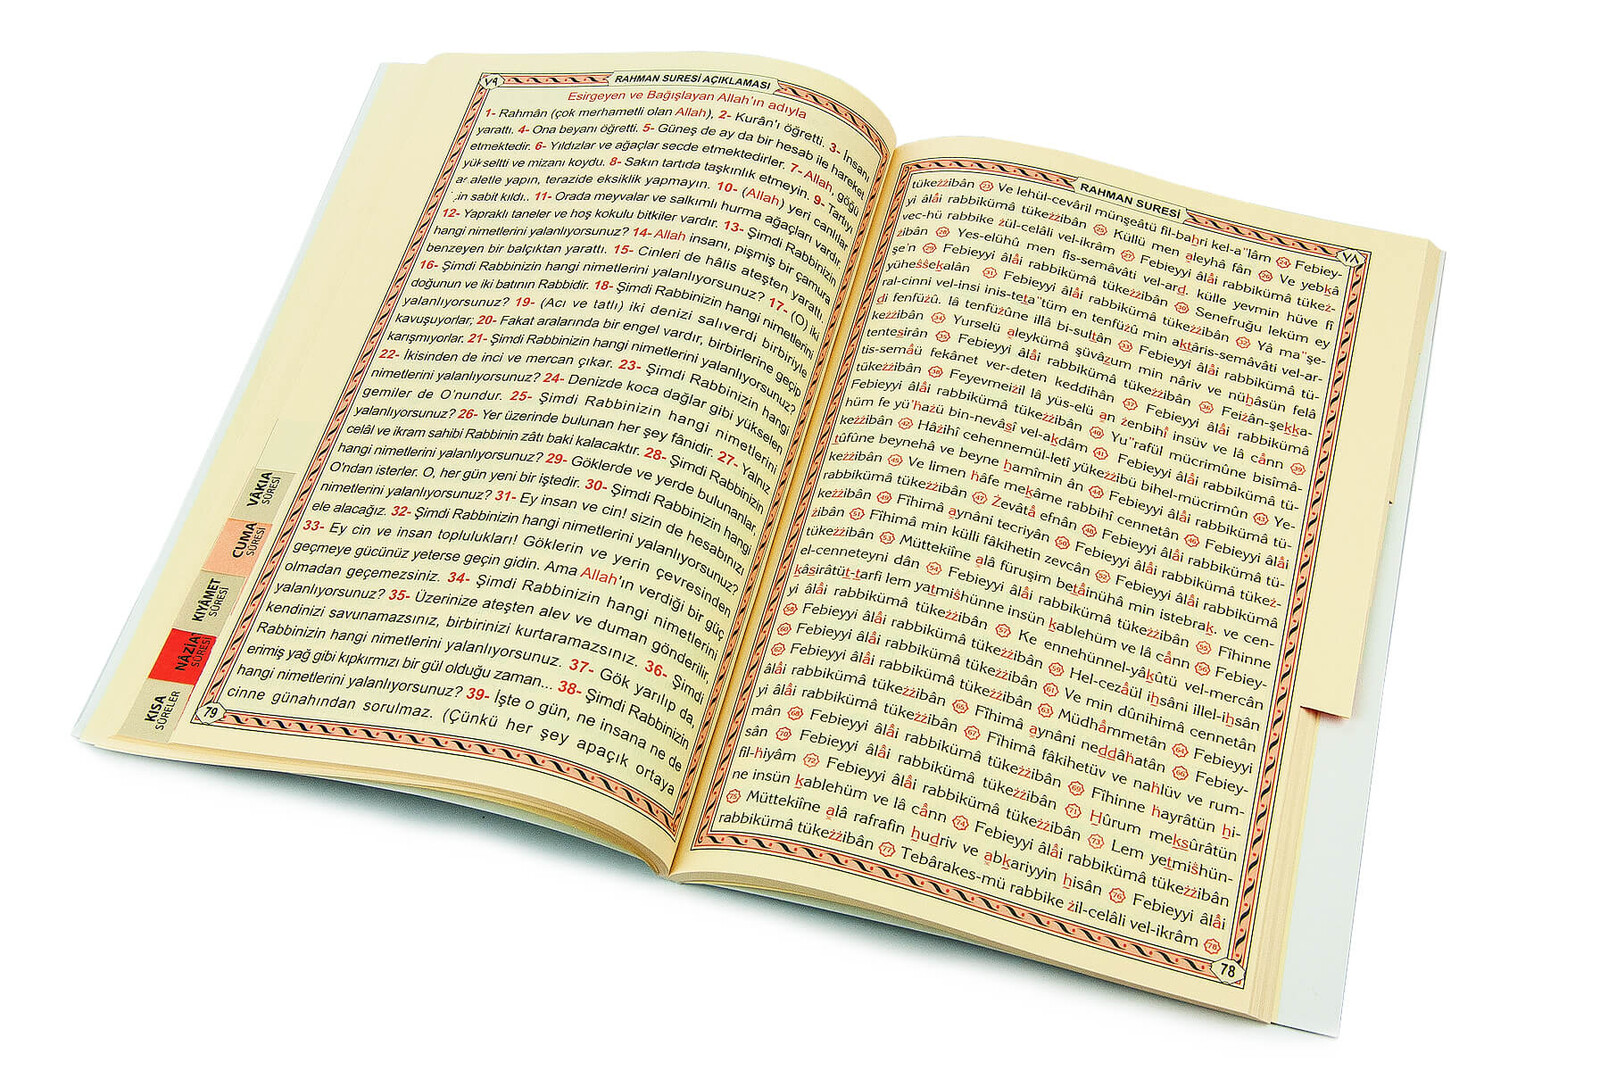 ٧٩
RAHMAN SURESİ AÇIKLAMASI
Esirgeyen ve Bağışlayan Allah'ın adıyla
1- Rahmân (çok merhametli olan Allah), 2- Kurân'ı öğretti. 3- İnsanı
yarattı. 4- Ona beyanı öğretti. 5- Güneş de ay da bir hesab ile hareket
etmektedir. 6- Yıldızlar ve ağaçlar secde etmektedirler. 7- Allah, göğü
yükseltti ve mizanı koydu. 8- Sakın tartıda taşkınlık etmeyin. 9- Tartıyı
aletle yapın, terazide eksiklik yapmayın. 10- (Allah) yeri canlılar
sabit kıldı.. 11- Orada meyvalar ve salkımlı hurma ağaçları vardır.
12- Yapraklı taneler ve hoş kokulu bitkiler vardır. 13- Şimdi Rabbinizin
hangi nimetlerini yalanlıyorsunuz? 14- Allah insanı, pişmiş bir çamura
benzeyen bir balçıktan yarattı. 15- Cinleri de hâlis ateşten yarattı.
16- Şimdi Rabbinizin hangi nimetlerini yalanlıyorsunuz? 17- (O) İki
doğunun ve iki batının Rabbidir. 18- Şimdi Rabbinizin hangi nimetlerini
yalanlıyorsunuz? 19- (Acı ve tatlı) iki denizi salıverdi birbiriyle
kavuşuyorlar, 20- Fakat aralarında bir engel vardır, birbirlerine geçip
karışmıyorlar. 21- Şimdi Rabbinizin hangi nimetlerini yalanlıyorsunuz?
22- İkisinden de inci ve mercan çıkar. 23- Şimdi Rabbinizin hangi
nimetlerini yalanlıyorsunuz? 24- Denizde koca dağlar gibi yükselen
gemiler de O'nundur. 25- Şimdi Rabbinizin hangi nimetlerini
yalanlıyorsunuz? 26- Yer üzerinde bulunan her şey fânidir. 27- Yalnız
celâl ve ikram sahibi Rabbinin zâtı baki kalacaktır. 28- Şimdi Rabbinizin
hangi nimetlerini yalanlıyorsunuz? 29- Göklerde ve yerde bulunanlar
O'ndan isterler. O, her gün yeni bir iştedir. 30- Şimdi Rabbinizin hangi
nimetlerini yalanlıyorsunuz? 31- Ey insan ve cin! sizin de hesabınızı
ele alacağız. 32- Şimdi Rabbinizin hangi nimetlerini yalanlıyorsunuz?
33- Ey cin ve insan toplulukları! Göklerin ve yerin çevresinden
geçmeye gücünüz yeterse geçin gidin. Ama Allah'ın verdiği bir güç
olmadan geçemezsiniz. 34- Şimdi Rabbinizin hangi nimetlerini
yalanlıyorsunuz? 35- Üzerinize ateşten alev ve duman gönderilir,
kendinizi savunamazsınız, birbirinizi kurtaramazsınız. 36- Şimdi
Rabbinizin hangi nimetlerini yalanlıyorsunuz. 37- Gök yarılıp da,
erimiş yağ gibi kıpkırmızı bir gül olduğu zaman... 38- Şimdi Rabbinizin
hangi nimetlerini yalanlıyorsunuz? 39- İşte o gün, ne insana ne de
cinne günahından sorulmaz. (Çünkü her şey apaçık ortaya
79
VÂKIA SÛRESİ
CUMA SÛRESİ
KIYÂMET SÛRESİ
NÂZİAT SÛRESİ
KISA SÛRELER
RAHMAN SURESİ
٧٨
tükeżżibân 23 Ve lehül-cevâril münşeâtü fil-baḥri kel-a"lâm 24 Febiey-
yi âlâi rabbikümâ tükeżżibân 25 Küllü men aleyhâ fân 26 Ve yebḳâ
vec-hü rabbike żül-celâli vel-ikrâm 27 Febieyyi âlâi rabbikümâ tükeż-
żibân 28 Yes-elühû men fis-semâvâti vel-arḍ. külle yevmin hüve fî
şe'n 29 Febieyyi âlâi rabbikümâ tükeżżibân 30 Senefruğu leküm ey
yüheŝŝeḳalân 31 Febieyyi âlâi rabbikümâ tükeżżibân 32 Yâ ma"şe-
ral-cinni vel-insi inis-teṭa"tüm en tenfüżû min aḳṭâris-semâvâti vel-ar-
ḍi fenfüżû. lâ tenfüżûne illâ bi-sulṭân 33 Febieyyi âlâi rabbikümâ tü-
keżżibân 34 Yurselü aleykümâ şüvâẓum min nâriv ve nüḥâsün felâ
tenteṣirân 35 Febieyyi âlâi rabbikümâ tükeżżibân 36 Feizân-şeḳḳa-
tis-semâü fekânet ver-deten keddihân 37 Febieyyi âlâi rabbikümâ
tükeżżibân 38 Feyevmeiżil lâ yüs-elü an żenbihî insüv ve lâ cânn 39
Febieyyi âlâi rabbikümâ tükeżżibân 40 Yu"rafül mücrimûne bisîmâ-
hüm fe yü'ḫażü bin-nevâṣî vel-aḳdâm 41 Febieyyi âlâi rabbikümâ tü-
keżżibân 42 Hâżihî cehennemül-letî yükeżżibü bihel-mücrimûn 43 Ye-
ṭûfûne beynehâ ve beyne ḥamîmin ân 44 Febieyyi âlâi rabbikümâ tü-
keżżibân 45 Ve limen ḫâfe meḳâme rabbihî cennetân 46 Febieyyi âlâi
rabbikümâ tükeżżibân 47 Żevâtâ efnân 48 Febieyyi âlâi rabbikümâ tü-
keżżibân 49 Fîhimâ aynâni tecriyân 50 Febieyyi âlâi rabbikümâ tükeż-
żibân 51 Fîhimâ min külli fâkihetin zevcân 52 Febieyyi âlâi rabbikümâ
tükeżżibân 53 Müttekiîne alâ füruşim beṭâinühâ min istebraḳ. ve cen-
el-cenneteyni dân 54 Febieyyi âlâi rabbikümâ tükeżżibân 55 Fîhinne
ḳâṣirâtüṭ-ṭarfi lem yaṭmiŝhünne insün ḳablehüm ve lâ cânn 56 Febiey-
yi âlâi rabbikümâ tükeżżibân 57 Ke ennehünnel-yâḳûtü vel-mercân
58 Febieyyi âlâi rabbikümâ tükeżżibân 59 Hel-cezâül iḥsâni illel-iḥsân
60 Febieyyi âlâi rabbikümâ tükeżżibân 61 Ve min dûnihimâ cennetân
62 Febieyyi âlâi rabbikümâ tükeżżibân 63 Müdhâmmetân 64 Febieyyi
âlâi rabbikümâ tükeżżibân 65 Fîhimâ aynâni neḍḍâḫatân 66 Febiey-
yi âlâi rabbikümâ tükeżżibân 67 Fîhimâ fâkihetüv ve naḫlüv ve rum-
mân 68 Febieyyi âlâi rabbikümâ tükeżżibân 69 Fîhinne ḫayrâtün ḥi-
sân 70 Febieyyi âlâi rabbikümâ tükeżżibân 71 Ḥûrum meḳṣûrâtün
fil-ḫiyâm 72 Febieyyi âlâi rabbikümâ tükeżżibân 73 Lem yeṭmiŝhün-
ne insün ḳablehüm ve lâ cânn 74 Febieyyi âlâi rabbikümâ tükeżżibân
75 Müttekiîne alâ rafrafin ḫuḍriv ve abḳariyyin ḥisân 76 Febieyyi âlâi
rabbikümâ tükeżżibân 77 Tebârakes-mü rabbike żil-celâli vel-ikrâm 78
78